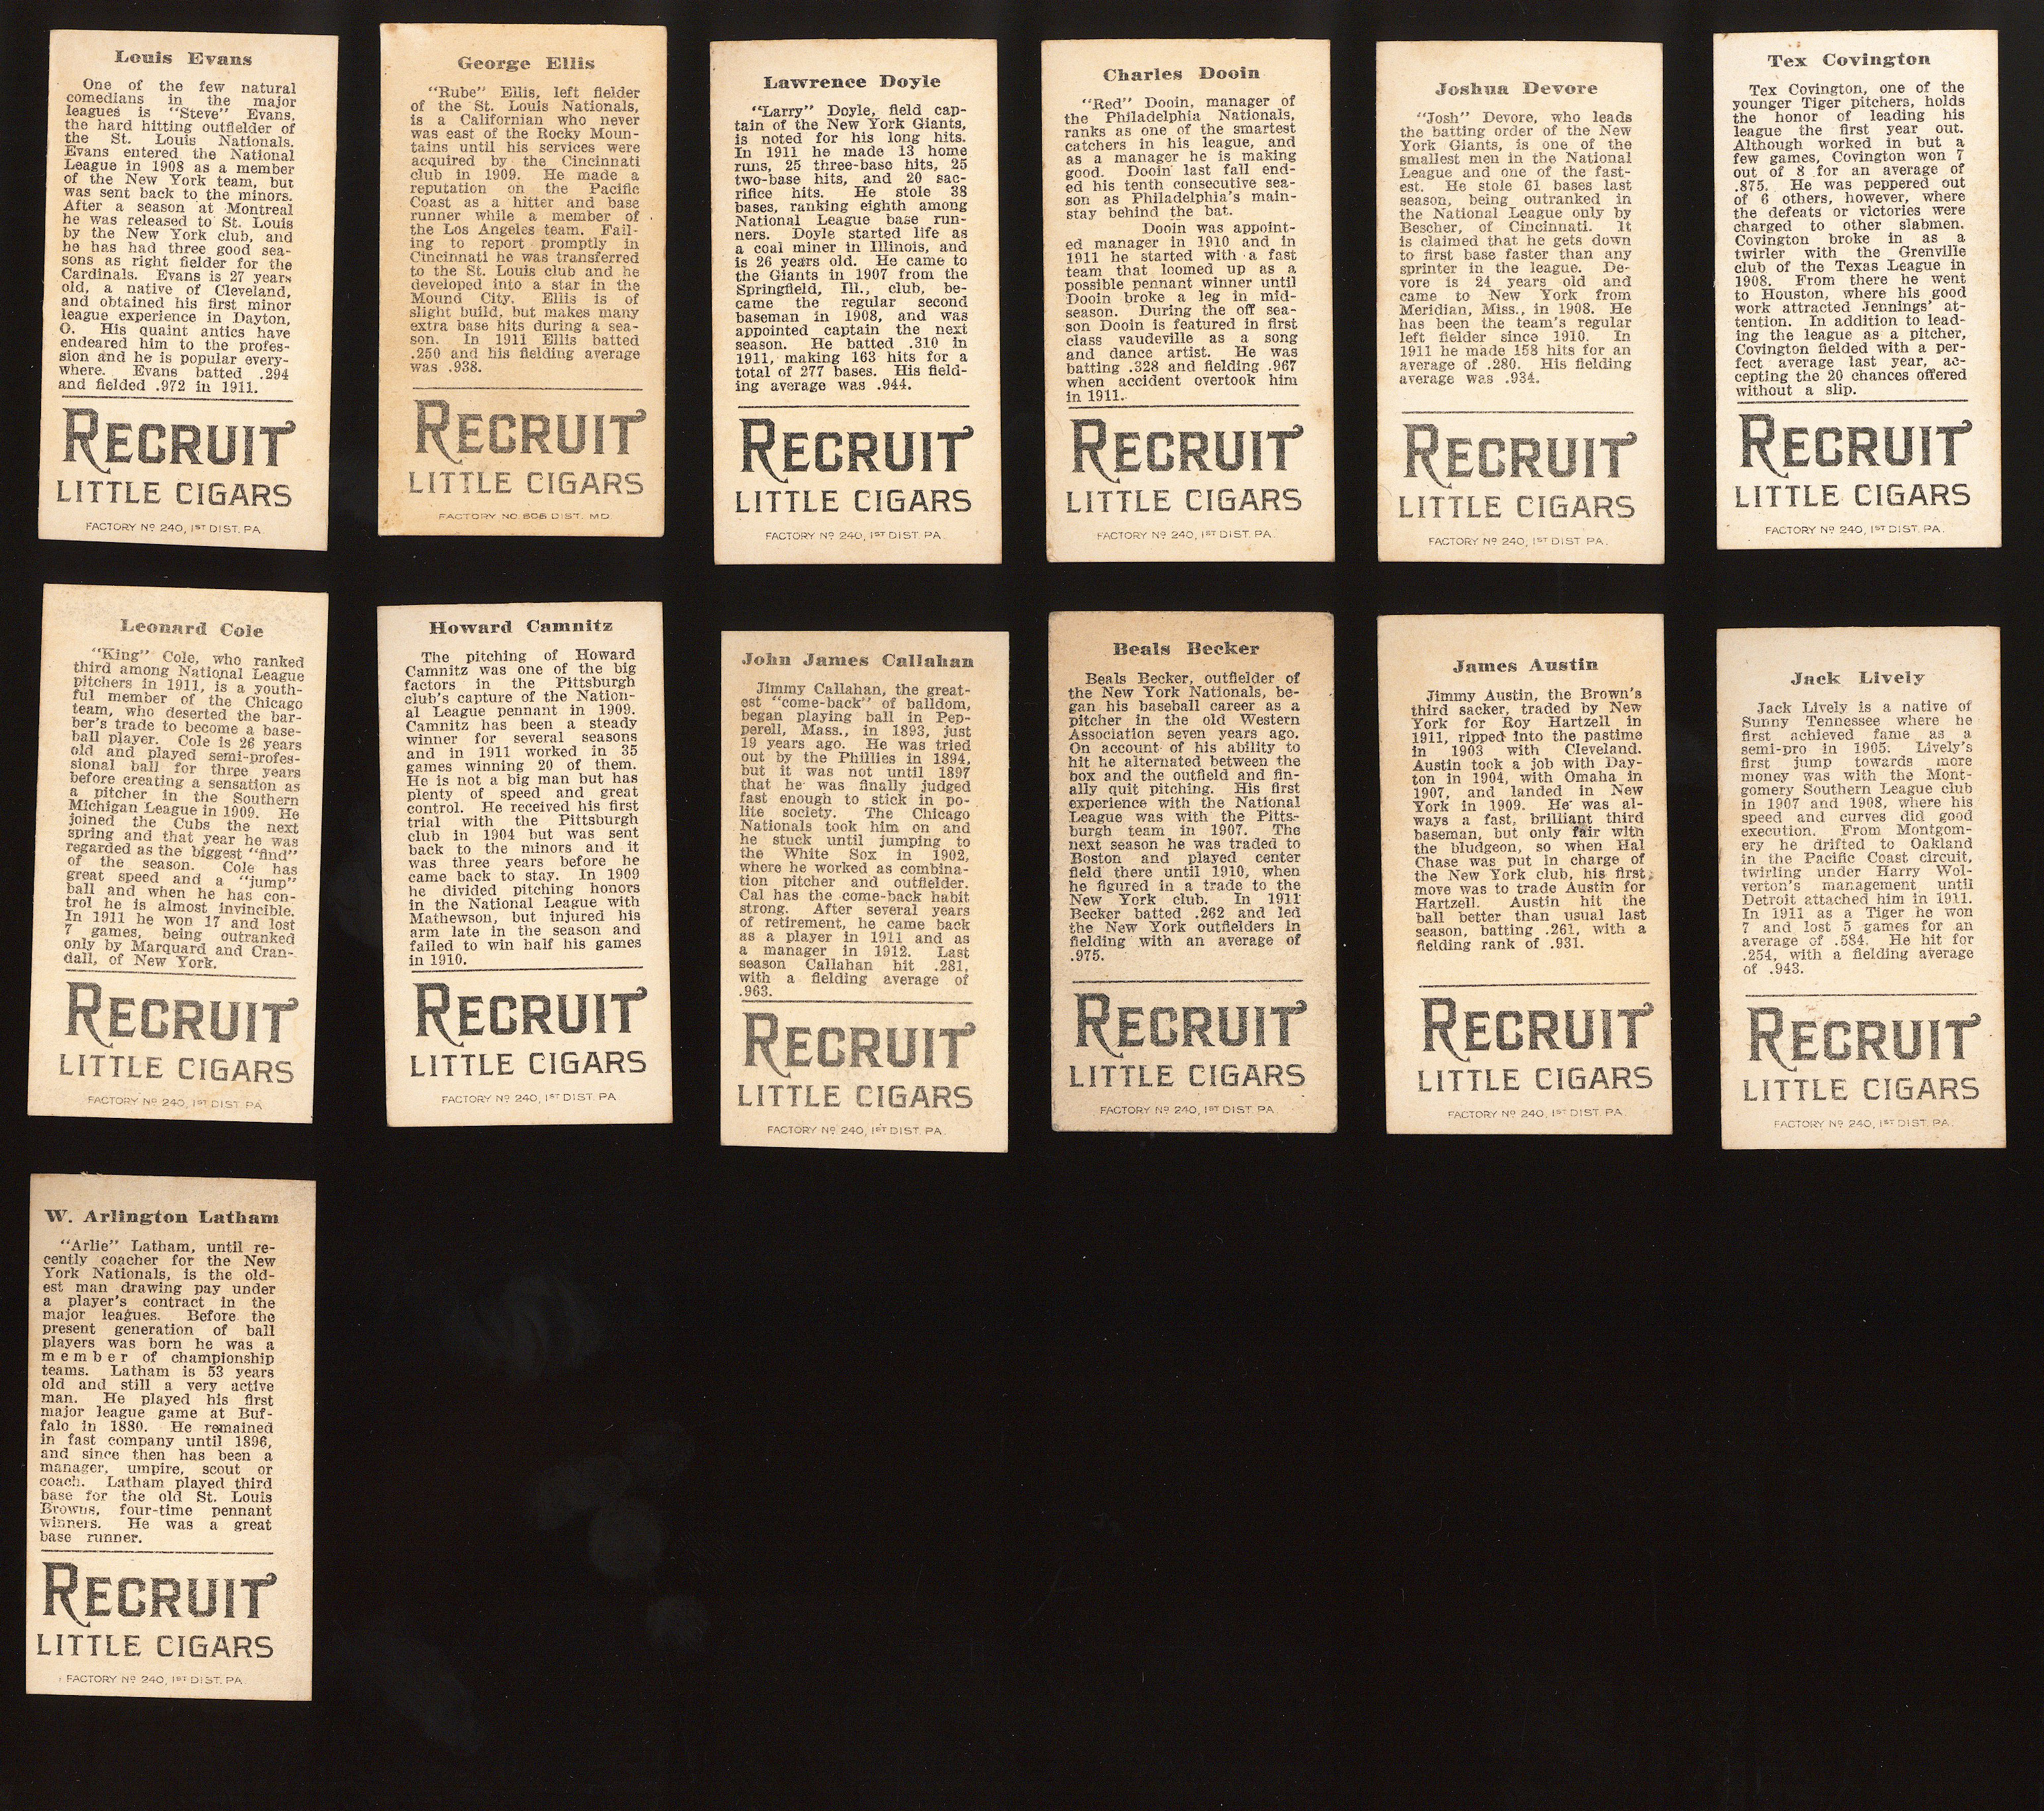 Louis Evans
One of the few natural
comedians in the major
leagues is "Steve" Evans,
the hard hitting outfielder of
the St. Louis Nationals.
Evans entered the National
League in 1908 as a member
of the New York team, but
was sent back to the minors.
After a season at Montreal
he was released to St. Louis
by the New York club, and
he has had three good sea-
sons as right fielder for the
Cardinals. Evans is 27 years
old, a native of Cleveland,
and obtained his first minor
league experience in Dayton,
O. His quaint antics have
endeared him to the profes-
sion and he is popular every-
where. Evans batted .294
and fielded .972 in 1911.
RECRUIT
LITTLE CIGARS
FACTORY Nº 240, 1ST DIST. PA.
George Ellis
"Rube" Ellis, left fielder
of the St. Louis Nationals,
is a Californian who never
was east of the Rocky Moun-
tains until his services were
acquired by the Cincinnati
club in 1909. He made a
reputation on the Pacific
Coast as a hitter and base
runner while a member of
the Los Angeles team. Fail-
ing to report promptly in
Cincinnati he was transferred
to the St. Louis club and he
developed into a star in the
Mound City. Ellis is of
slight build, but makes many
extra base hits during a sea-
son. In 1911 Ellis batted
.250 and his fielding average
was .938.
RECRUIT
LITTLE CIGARS
FACTORY NO. 606 DIST. MD
Lawrence Doyle
"Larry" Doyle, field cap-
tain of the New York Giants,
is noted for his long hits.
In 1911 he made 13 home
runs, 25 three-base hits, 25
two-base hits, and 20 sac-
rifice hits. He stole 38
bases, ranking eighth among
National League base run-
ners. Doyle started life as
a coal miner in Illinois, and
is 26 years old. He came to
the Giants in 1907 from the
Springfield, Ill., club, be-
came the regular second
baseman in 1908, and was
appointed captain the next
season. He batted .310 in
1911, making 163 hits for a
total of 277 bases. His field-
ing average was .944.
RECRUIT
LITTLE CIGARS
FACTORY Nº 240, 1ST DIST. PA.
Charles Dooin
"Red" Dooin, manager of
the Philadelphia Nationals,
ranks as one of the smartest
catchers in his league, and
as a manager he is making
good. Dooin last fall end-
ed his tenth consecutive sea-
son as Philadelphia's main-
stay behind the bat.
Dooin was appoint-
ed manager in 1910 and in
1911 he started with a fast
team that loomed up as a
possible pennant winner until
Dooin broke a leg in mid-
season. During the off sea-
son Dooin is featured in first
class vaudeville as a song
and dance artist. He was
batting .328 and fielding .967
when accident overtook him
in 1911.
RECRUIT
LITTLE CIGARS
FACTORY Nº 240, 1ST DIST. PA.
Joshua Devore
"Josh" Devore, who leads
the batting order of the New
York Giants, is one of the
smallest men in the National
League and one of the fast-
est. He stole 61 bases last
season, being outranked in
the National League only by
Bescher, of Cincinnati. It
is claimed that he gets down
to first base faster than any
sprinter in the league. De-
vore is 24 years old and
came to New York from
Meridian, Miss., in 1908. He
has been the team's regular
left fielder since 1910. In
1911 he made 158 hits for an
average of .280. His fielding
average was .934.
RECRUIT
LITTLE CIGARS
FACTORY Nº 240, 1ST DIST. PA.
Tex Covington
Tex Covington, one of the
younger Tiger pitchers, holds
the honor of leading his
league the first year out.
Although worked in but a
few games, Covington won 7
out of 8 for an average of
.875. He was peppered out
of 6 others, however, where
the defeats or victories were
charged to other slabmen.
Covington broke in as a
twirler with the Grenville
club of the Texas League in
1908. From there he went
to Houston, where his good
work attracted Jennings' at-
tention. In addition to lead-
ing the league as a pitcher,
Covington fielded with a per-
fect average last year, ac-
cepting the 20 chances offered
without a slip.
RECRUIT
LITTLE CIGARS
FACTORY Nº 240, 1ST DIST. PA.
Leonard Cole
"King" Cole, who ranked
third among National League
pitchers in 1911, is a youth-
ful member of the Chicago
team, who deserted the bar-
ber's trade to become a base-
ball player. Cole is 26 years
old and played semi-profes-
sional ball for three years
before creating a sensation as
a pitcher in the Southern
Michigan League in 1909. He
joined the Cubs the next
spring and that year he was
regarded as the biggest "find"
of the season. Cole has
great speed and a "jump"
ball and when he has con-
trol he is almost invincible.
In 1911 he won 17 and lost
7 games, being outranked
only by Marquard and Cran-
dall, of New York.
RECRUIT
LITTLE CIGARS
FACTORY Nº 240, 1ST DIST. PA
Howard Camnitz
The pitching of Howard
Camnitz was one of the big
factors in the Pittsburgh
club's capture of the Nation-
al League pennant in 1909.
Camnitz has been a steady
winner for several seasons
and in 1911 worked in 35
games winning 20 of them.
He is not a big man but has
plenty of speed and great
control. He received his first
trial with the Pittsburgh
club in 1904 but was sent
back to the minors and it
was three years before he
came back to stay. In 1909
he divided pitching honors
in the National League with
Mathewson, but injured his
arm late in the season and
failed to win half his games
in 1910.
RECRUIT
LITTLE CIGARS
FACTORY Nº 240, 1ST DIST. PA
John James Callahan
Jimmy Callahan, the great-
est "come-back" of balldom,
began playing ball in Pep-
perell, Mass., in 1893, just
19 years ago. He was tried
out by the Phillies in 1894,
but it was not until 1897
that he was finally judged
fast enough to stick in po-
lite society. The Chicago
Nationals took him on and
he stuck until jumping to
the White Sox in 1902,
where he worked as combina-
tion pitcher and outfielder.
Cal has the come-back habit
strong. After several years
of retirement, he came back
as a player in 1911 and as
a manager in 1912. Last
season Callahan hit .281,
with a fielding average of
.963.
RECRUIT
LITTLE CIGARS
FACTORY Nº 240, 1ST DIST. PA.
Beals Becker
Beals Becker, outfielder of
the New York Nationals, be-
gan his baseball career as a
pitcher in the old Western
Association seven years ago.
On account of his ability to
hit he alternated between the
box and the outfield and fin-
ally quit pitching. His first
experience with the National
League was with the Pitts-
burgh team in 1907. The
next season he was traded to
Boston and played center
field there until 1910, when
he figured in a trade to the
New York club. In 1911
Becker batted .262 and led
the New York outfielders in
fielding with an average of
.975.
RECRUIT
LITTLE CIGARS
FACTORY Nº 240, 1ST DIST. PA.
James Austin
Jimmy Austin, the Brown's
third sacker, traded by New
York for Roy Hartzell in
1911, ripped into the pastime
in 1903 with Cleveland.
Austin took a job with Day-
ton in 1904, with Omaha in
1907, and landed in New
York in 1909. He was al-
ways a fast, brilliant third
baseman, but only fair with
the bludgeon, so when Hal
Chase was put in charge of
the New York club, his first
move was to trade Austin for
Hartzell. Austin hit the
ball better than usual last
season, batting .261, with a
fielding rank of .931.
RECRUIT
LITTLE CIGARS
FACTORY Nº 240, 1ST DIST. PA.
Jack Lively
Jack Lively is a native of
Sunny Tennessee where he
first achieved fame as a
semi-pro in 1905. Lively's
first jump towards more
money was with the Mont-
gomery Southern League club
in 1907 and 1908, where his
speed and curves did good
execution. From Montgom-
ery he drifted to Oakland
in the Pacific Coast circuit,
twirling under Harry Wol-
verton's management until
Detroit attached him in 1911.
In 1911 as a Tiger he won
7 and lost 5 games for an
average of .584. He hit for
.254, with a fielding average
of .943.
RECRUIT
LITTLE CIGARS
FACTORY Nº 240, 1ST DIST. PA.
W. Arlington Latham
"Arlie" Latham, until re-
cently coacher for the New
York Nationals, is the old-
est man drawing pay under
a player's contract in the
major leagues. Before the
present generation of ball
players was born he was a
member of championship
teams. Latham is 53 years
old and still a very active
man. He played his first
major league game at Buf-
falo in 1880. He remained
in fast company until 1896,
and since then has been a
manager, umpire, scout or
coach. Latham played third
base for the old St. Louis
Browns, four-time pennant
winners. He was a great
base runner.
RECRUIT
LITTLE CIGARS
FACTORY Nº 240, 1ST DIST. PA